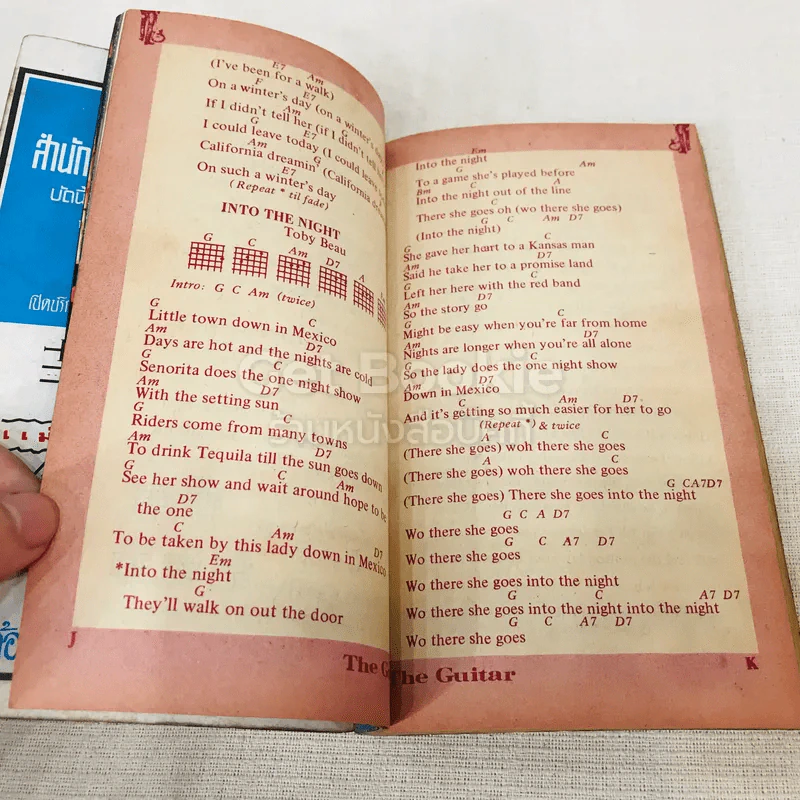 สำนัก
บัตนี้
เปิดบริก
E7 Am
(I've been for a walk)
F E7
On a winter's day (on a winter's day
Am
If I didn't tell her (if I didn't tell
G G
I could leave today (I could leave
Am G
California dreamin' (California
E7
On such a winter's day
(Repeat * til fade)
INTO THE NIGHT
Toby Beau
G C Am D7 A
Intro: G C Am (twice)
G C
Little town down in Mexico
Am D7
Days are hot and the nights are cold
G C
Senorita does the one night show
Am D7
With the setting sun
G C
Riders come from many towns
Am D7
To drink Tequila till the sun goes down
G C Am
See her show and wait around hope to be
D7
the one
C Am D7
To be taken by this lady down in Mexico
Em
*Into the night
G
They'll walk on out the door
J
The G
Em
Into the night
G Am
To a game she's played before
Bm C A
Into the night out of the line
C
There she goes oh (wo there she goes)
G C Am D7
(Into the night)
G C
She gave her heart to a Kansas man
Am D7
Said he take her to a promise land
G C
Left her here with the red band
Am D7
So the story go
G C
Might be easy when you're far from home
Am D7
Nights are longer when you're all alone
G C
So the lady does the one night show
Am D7
Down in Mexico
C Am D7
And it's getting so much easier for her to go
(Repeat *) & twice
A C
(There she goes) woh there she goes
A C
(There she goes) woh there she goes
G CA7D7
(There she goes) There she goes into the night
G C A D7
Wo there she goes
G C A7 D7
Wo there she goes
Wo there she goes into the night
G C A7 D7
Wo there she goes into the night into the night
G C A7 D7
Wo there she goes
The Guitar
K
Get Bookie
ร้านหนังสือบุ๊คกี้